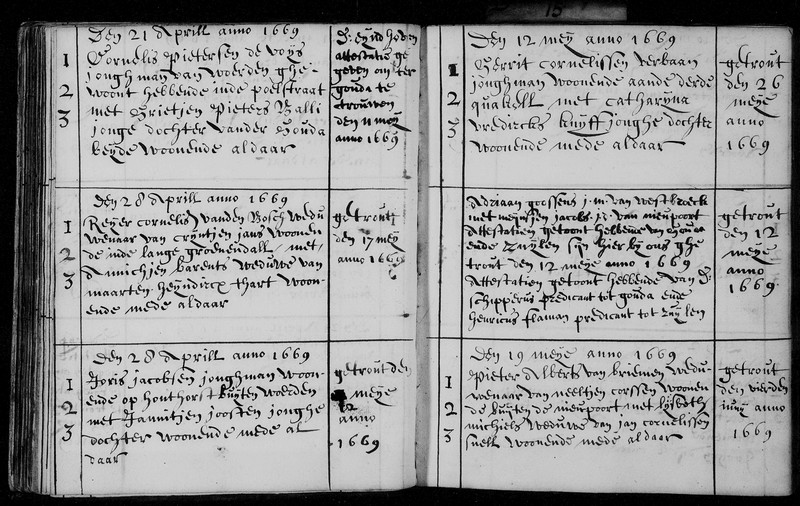 15
Den 21 Aprill anno 1669
1
2
3
Cornelis Pietersen de voijs
jonghman van woerden ghe-
woont hebbende inde poelstraat
met Grietjen Pieters Balli
jonge dochter vander Gouda
beijde woonende aldaar
attestatie ge
geven om ter
gouda te
trouwen
den 11 meij
anno 1669
Den 28 Aprill anno 1669
1
2
3
Reijer cornelis vanden Bosch wedu
wenaar van crijntjen jans woonen
de inde lange groenendall met
barents weduwe van
maarten heijndricx thart woon-
ende mede aldaar
getrout
den 17 meij
anno 1669
Den 28 Aprill anno 1669
1
2
3
Joris jacobsen jonghman woon-
ende op honthorst buijten woerden
met Jannitjen joosten jonghe
dochter woonende mede al
daar
getrout den
12 meije
anno
1669
Den 12 meij anno 1669
1
2
3
Gerrit cornelissen verbaan
jonghman woonende aande derde
quakell met catharijna
vredericks kuijff jonghe dochter
woonende mede aldaar
getrout
den 26
meije
anno
1669
Adriaan goossens j.m. van westbroeck
met meijnsjen jacobs j.d. van nieupoort
Attestatien getoont hebbende van gouda
ende zuijlen sijn hier bij ons ghe
trout den 12 meije anno 1669
Attestatien getoont hebbende van D:
schipperus predicant tot gouda ende
henricus flaman predicant tot zuijlen
getrout
den 12
meije
anno
1669
Den 19 meije anno 1669
1
2
3
Pieter Alberts van briemen wedu-
wenaar van neeltjen corssen woonen
de buijten de nieupoort met lijsbeth
michiels weduwe van jan cornelissen
snell woonende mede aldaar
getrout
den vierden
junij anno
1669